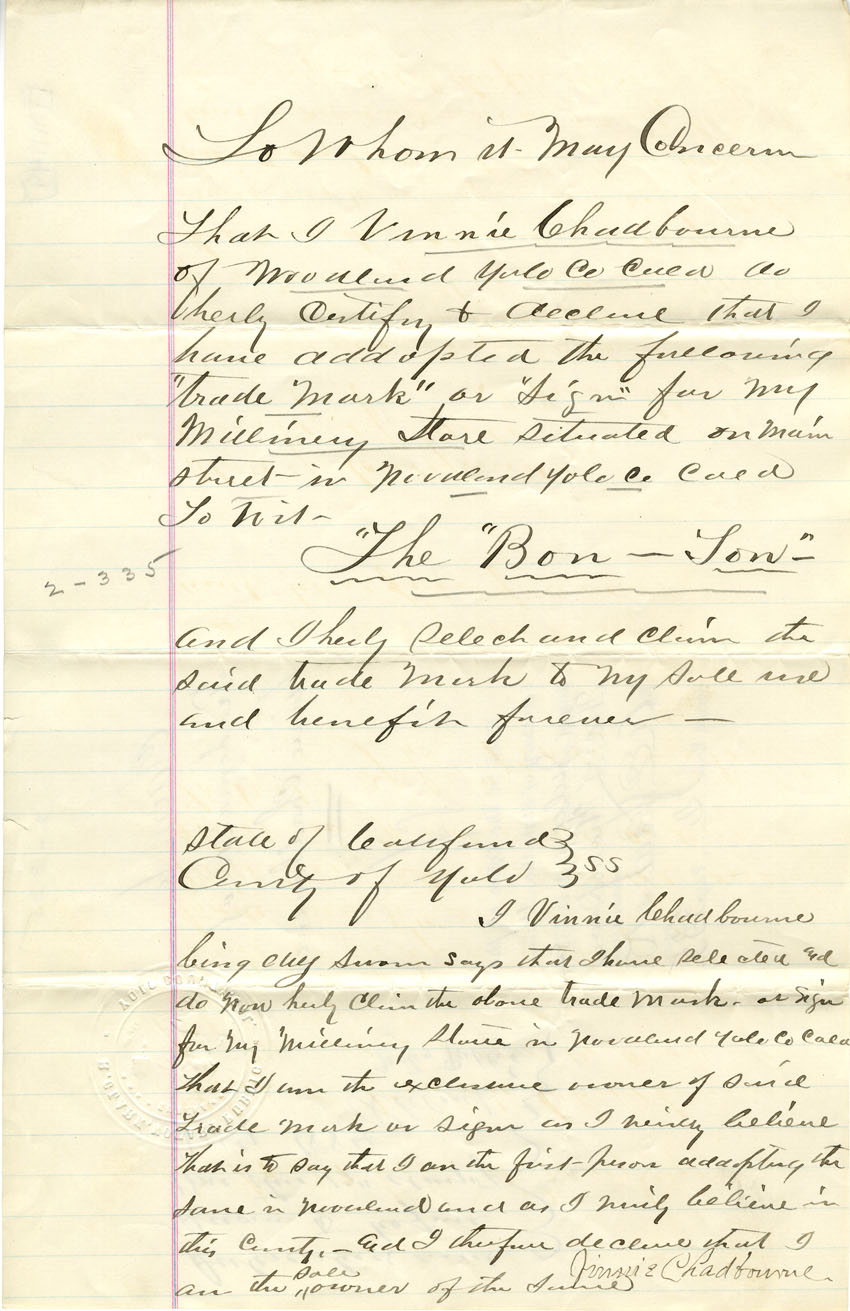 To Whom it May Concern
That I Vinnie Chadbourne
of Woodland Yolo Co Cala do
herby Certify & declare that I
have addopted the following
"trade Mark" or "Sign" for My
Millinery Store situated on Main
street in Woodland Yolo Co Cala
To Wit -
"The "Bon - Ton" -
2-335
and I herby select and claim the
said trade Mark to My sole use
and benefit forever -
State of California }
County of Yolo } SS
I Vinnie Chadbourne
being duly sworn says that I have selected and
do now herby claim the above trade Mark - or Sign
for My Millinery Store in Woodland Yolo Co Cala
that I am the exclusive owner of said
trade Mark or Sign as I verily believe
that is to say that I am the first person addopting the
same in Woodland and as I verily believe in
this County, - and I therfore declare that I
am the sole owner of the same Vinnie Chadbourne.